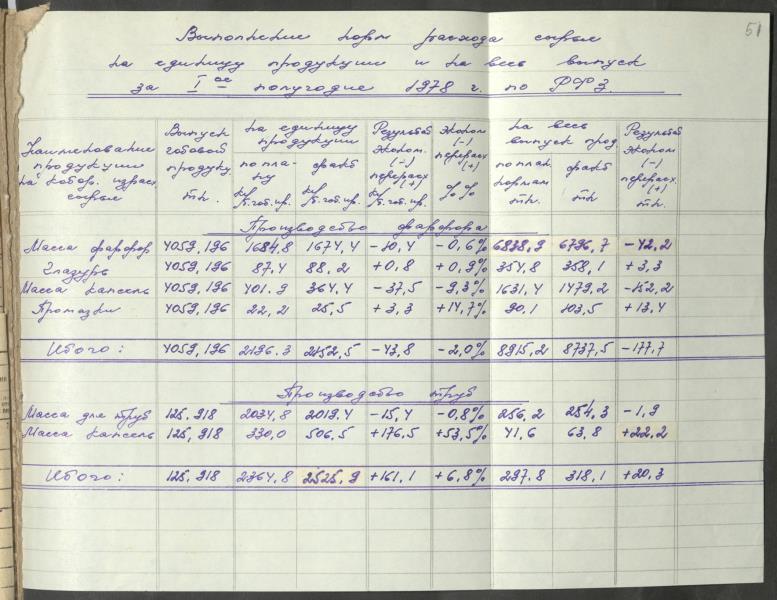 51
Выполнение норм расхода сырья
на единицу продукции и на весь выпуск
за I ое полугодие 1978 г. по РФЗ.
Наименование продукции на котор. израсх. сырье
Выпуск готовой продукц. тн.
на единицу продукции
по плану кг/т.гот.пр.
факт кг/т.гот.пр.
Результат эконом. (-) перерасх. (+) кг/т.гот.пр.
Эконом (-) перерасх (+) %%
на весь выпуск прод.
по план. нормам тн.
факт тн.
Результат эконом. (-) перерасх. (+) тн.
Производство фарфора
Масса фарфор 4059,196 1684,8 1674,4 -10,4 -0,6% 6838,9 6796,7 -42,2
Глазурь 4059,196 87,4 88,2 +0,8 +0,9% 354,8 358,1 +3,3
Масса капсель 4059,196 401.9 364,4 -37,5 -9,3% 1631,4 1479,2 -152,2
Промазки 4059,196 22,2 25,5 +3,3 +14,7% 90,1 103,5 +13,4
Итого: 4059,196 2196.3 2152,5 -43,8 -2,0% 8915,2 8737,5 -177,7
Производство труб
Масса для труб 125,918 2034,8 2019,4 -15,4 -0,8% 256,2 254,3 -1,9
Масса капсель 125,918 330,0 506,5 +176,5 +53,5% 41,6 63,8 +22,2
Итого: 125,918 2364,8 2525,9 +161,1 +6,8% 297.8 318,1 +20,3